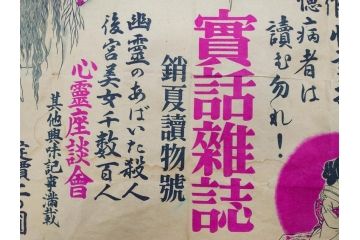 憶病者は
讀む勿れ!
實話雜誌
銷夏讀物號
幽靈のあばいた殺人
後宮美女千數百人
心靈座談會
其他興味記事滿載
定價二〇圓